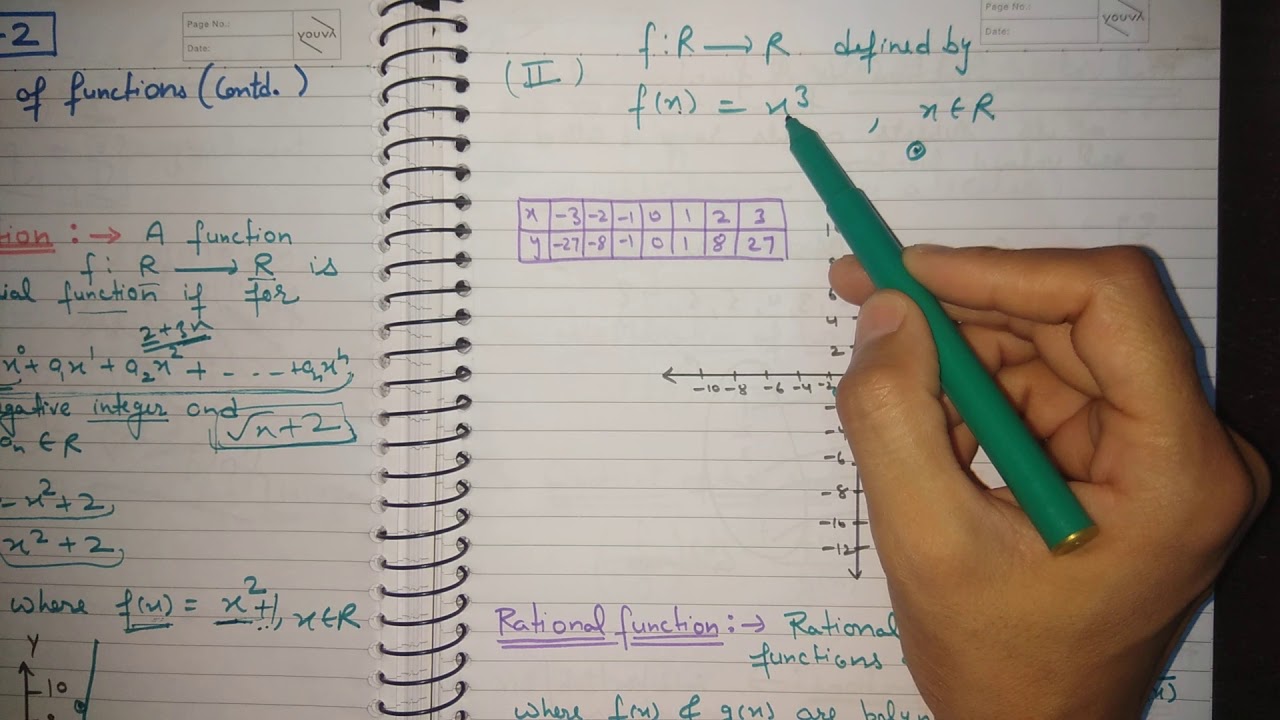 -2
Page No.:
Date:
youvλ
of functions (Contd.)
tion :→ A function
f: R → R is
ial function if for
2+3x
x⁰ + a₁x¹ + a₂x² + - - - - + aₙxⁿ,
gative integer and
√x+2
aₙ ∈ R
- x² + 2
x² + 2
where f(x) = x²+1, x∈R
Y
10
Page No.:
Date:
youvλ
(II) f: R → R defined by
f(x) = x³, x ∈ R
x -3 -2 -1 0 1 2 3
y -27 -8 -1 0 1 8 27
6
4
2
-10 -8 -6 -4 -2
-4
-6
-8
-10
-12
Rational function :→ Rational
functions
where f(x) & g(x) are polyn